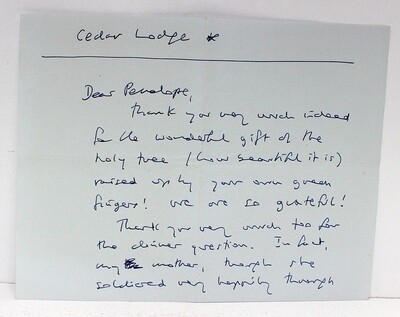 Cedar Lodge *
Dear Penelope,
Thank you very much indeed
for the wonderful gift of the
holy tree (how beautiful it is)
raised up by your own green
fingers! We are so grateful!
Thank you very much too for
the dinner question. In fact,
my mother, though she
soldiered very happily through